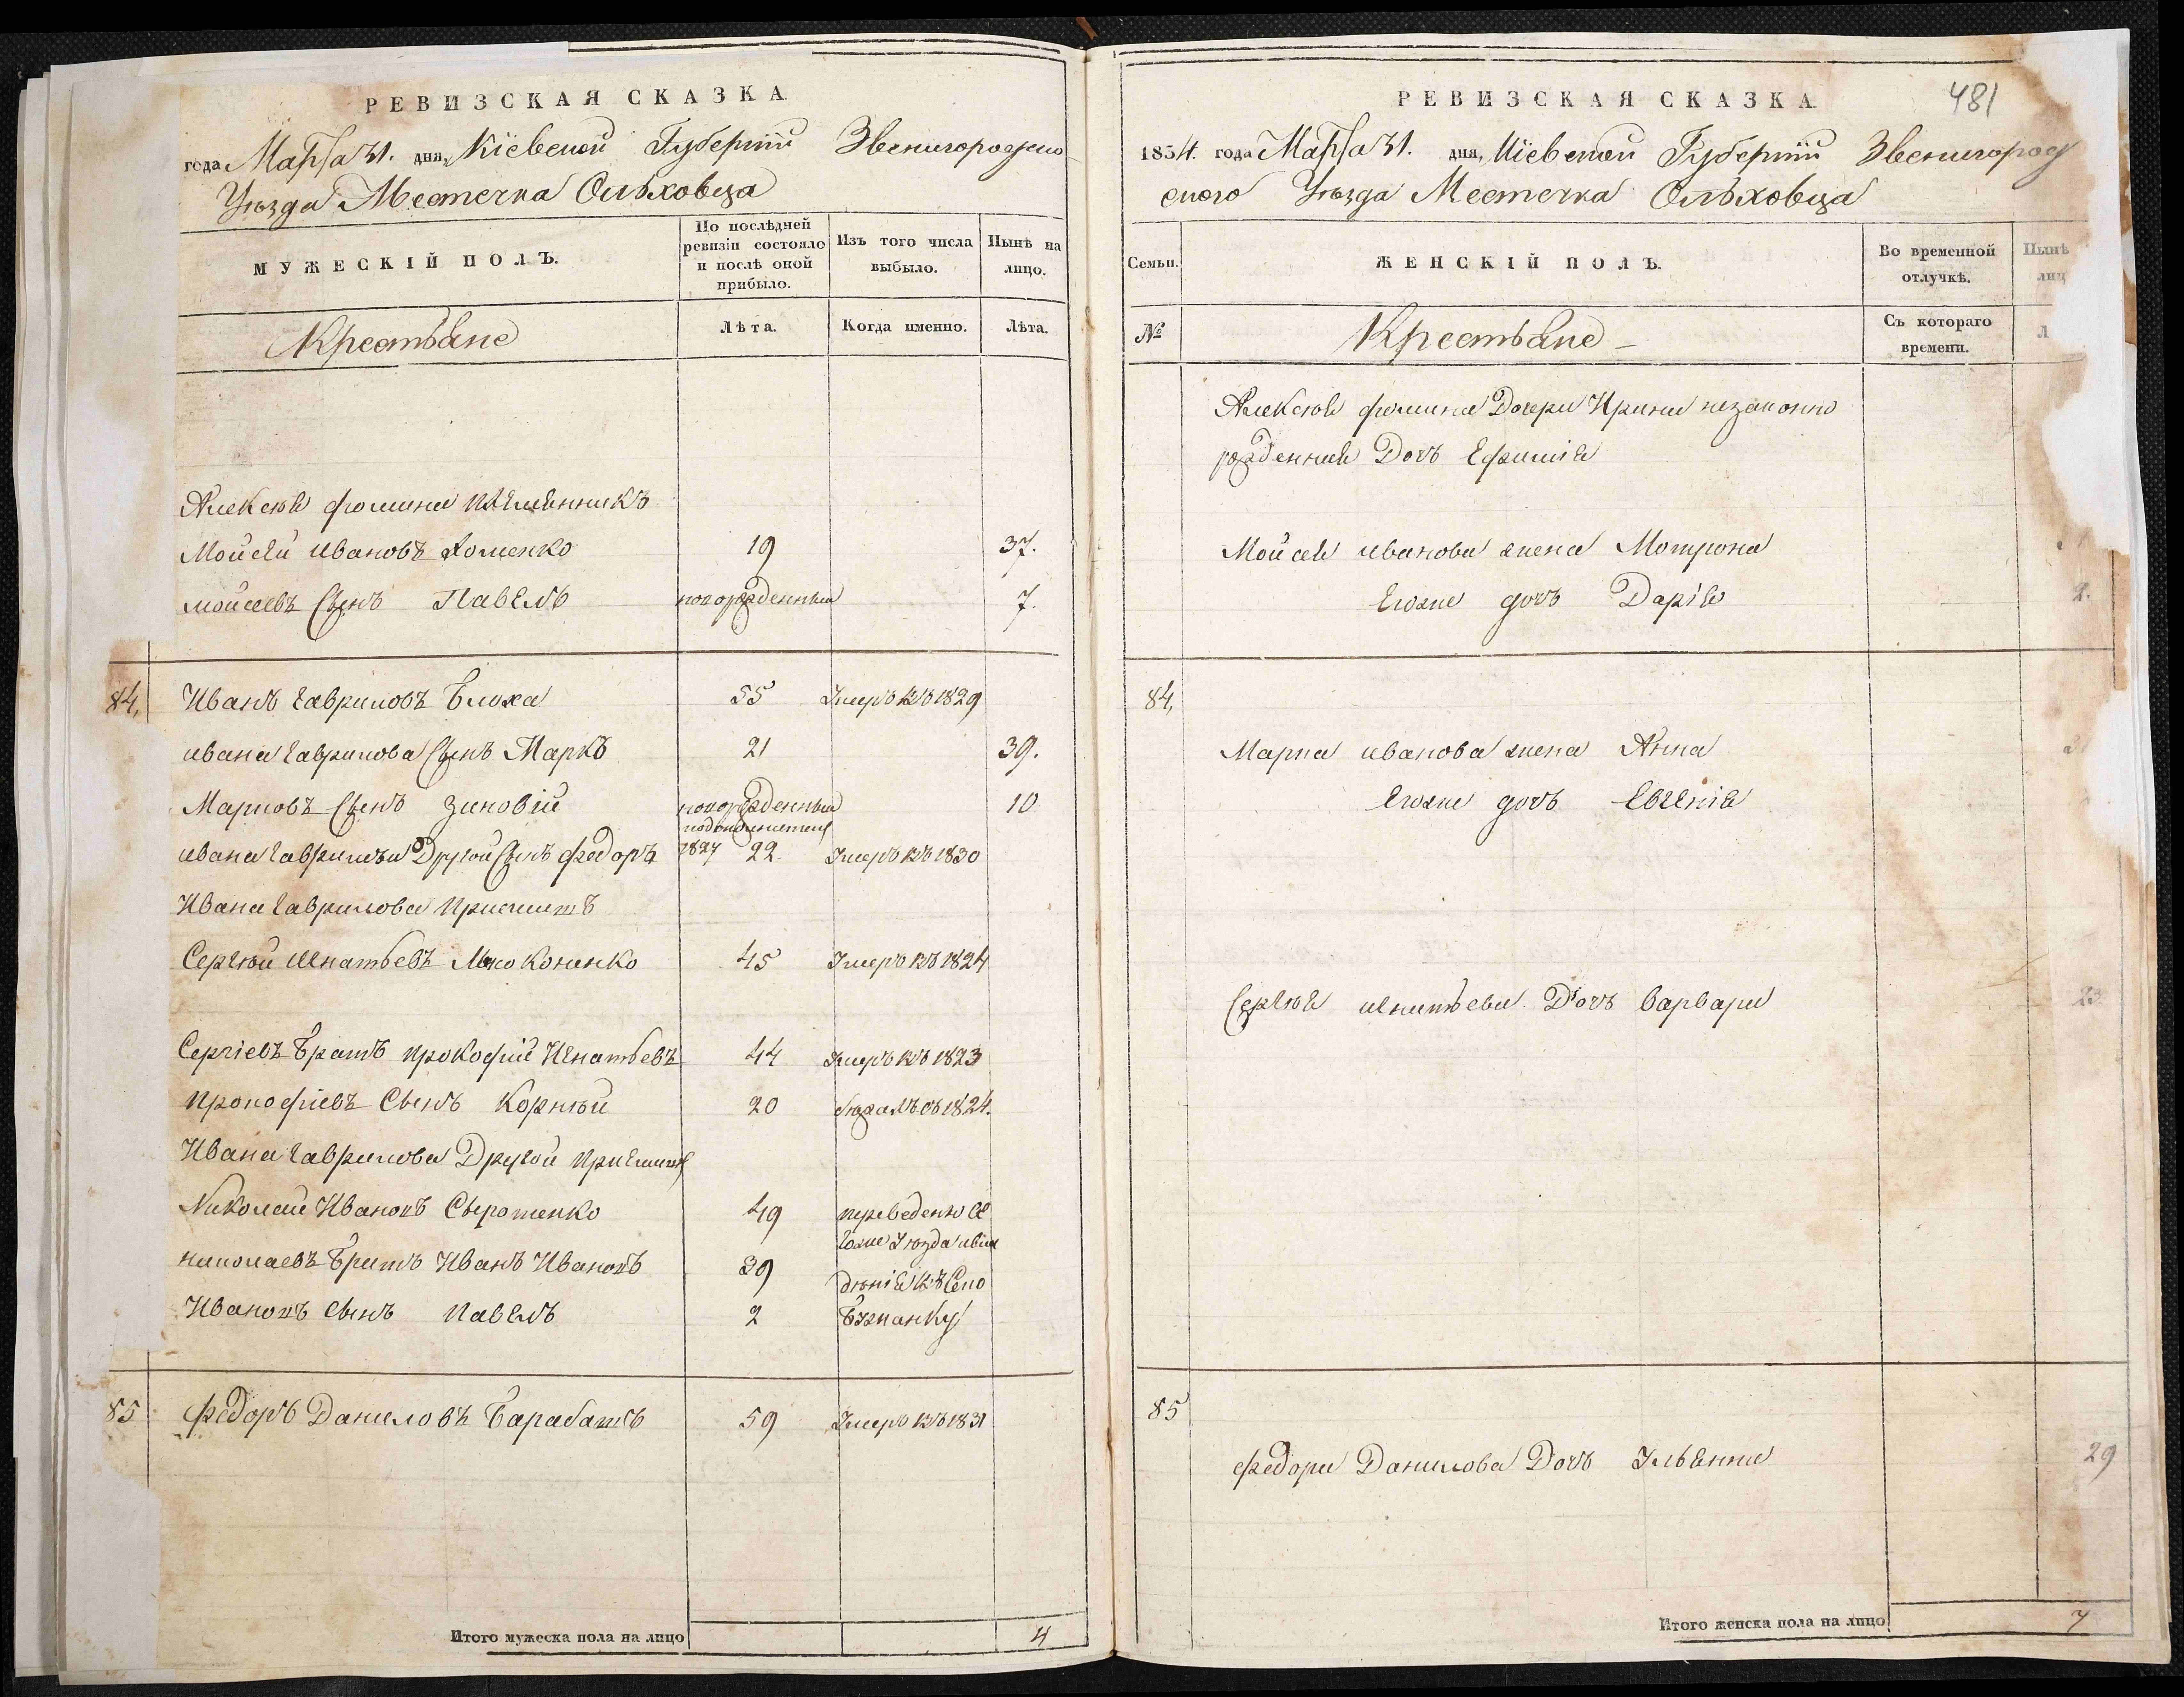 РЕВИЗСКАЯ СКАЗКА.
года Марта 31. дня, Кіевской Губерніи Звенигородско
Уѣзда Местечка Ольховца
МУЖЕСКІЙ ПОЛЪ.
По послѣдней ревизіи состояло и послѣ оной прибыло.
Изъ того числа выбыло.
Нынѣ на лицо.
Крестьяне
Лѣта.
Когда именно.
Лѣта.
Алексѣя фомина племянникъ
Мойсей Ивановъ Хоменко 19 37.
мойсеевъ Сынъ Павелъ новорожденный 7.
84, Иванъ Гавриловъ Блоха 55 Умеръ въ 1829
ивана Гаврилова Сынъ Марко 21 39.
Марковъ Сынъ Зиновій новорожденный 10
ивана Гаврилова Другой Сынъ федоръ 1827 22. Умеръ въ 1830
Ивана Гаврилова Приемишъ
Сергѣй Игнатьевъ 45 Умеръ въ 1824
Сергіевъ Братъ Прокофій Игнатьевъ 44 Умеръ въ 1823
Прокофіевъ Сынъ Корнѣй 20 бѣжалъ въ 1824.
Ивана Гаврилова Другой Приемишъ
Николай Ивановъ Сыротенко 49 переведены Се
гоже Уѣзда имѣ
николаевъ Братъ Иванъ Ивановъ 39 дѣнія въ Село
Ивановъ Сынъ Павелъ 2
85 федоръ Даниловъ Барабашъ 59 Умеръ въ 1831
Итого мужеска пола на лицо 4
481
РЕВИЗСКАЯ СКАЗКА.
1834. года Марта 31. дня, Кіевской Губерніи Звенигород
ского Уѣзда Местечка Ольховца
Семьи.
ЖЕНСКІЙ ПОЛЪ.
Во временной отлучкѣ.
Нынѣ
лиц
№
Крестьяне
Съ котораго времени.
Л
Алексѣя фомина Дочери Ирины незаконно
рожденная Дочь Ефимія
Мойсея иванова жена Мотрона
Егоже дочь Дарія 2.
84,
Марка иванова жена Анна
Егоже дочь Евгенія
Сергѣя игнатьева Дочь Варвара 23
85
федора Данилова Дочь Ульянна 29
Итого женска пола на лицо 7